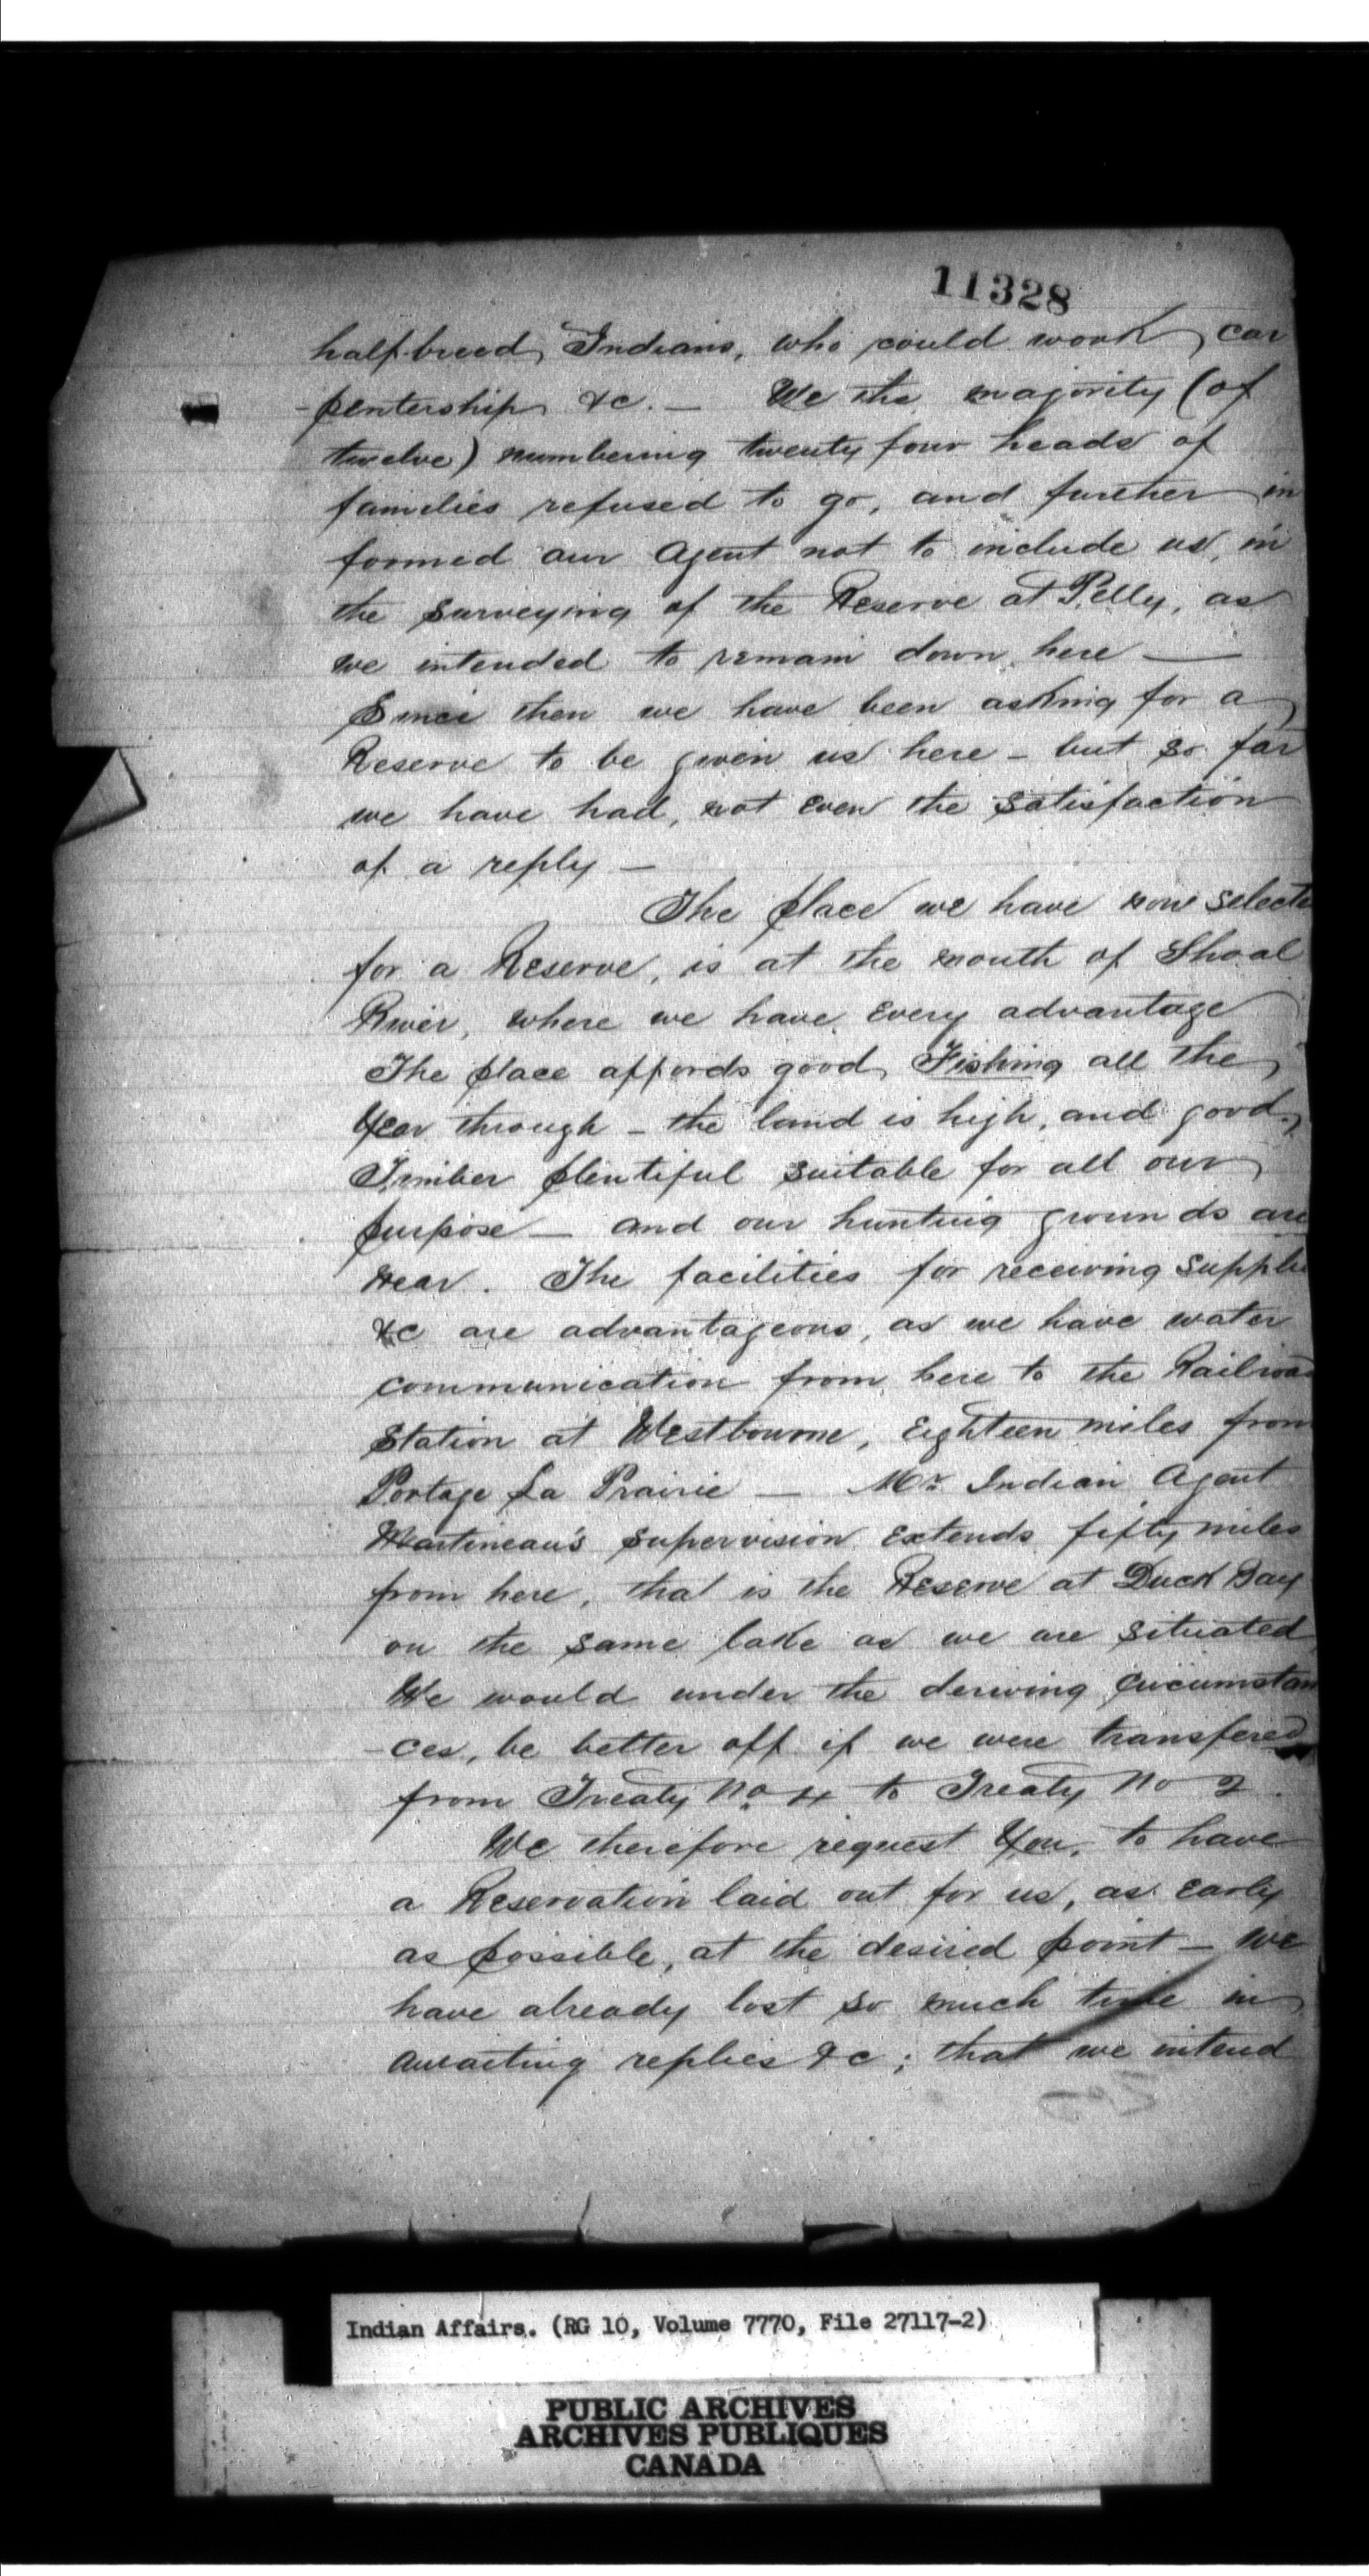 11328
half-breed Indians, who could work, car
-pentership &c. — We the majority (of
twelve) numbering twenty four heads of
families refused to go, and further in
formed our Agent not to include us, in
the surveying of the Reserve at Pelly, as
we intended to remain down here —
Since then we have been asking for a
Reserve to be given us here - but so far
we have had, not even the satisfaction
of a reply —
The place we have now selecte
for a Reserve, is at the mouth of Shoal
River, where we have every advantage
The place affords good Fishing all the
Year through - the land is high, and good,
Timber plentiful suitable for all our
purpose — and our hunting grounds are
near. The facilities for receiving supplie
&c are advantageous, as we have water
communication from here to the Railroad
Station at Westbourne, Eighteen miles from
Portage La Prairie — Mr. Indian Agent
Martineau's supervision extends fifty miles
from here, that is the Reserve at Duck Bay
on the same lake as we are situated
We would under the circumstan
-ces, be better off if we were transfered
from Treaty No 4 to Treaty No 2.
We therefore request You, to have
a Reservation laid out for us, as early
as possible, at the desired point — We
have already lost so much time in
awaiting replies &c; that we intend
Indian Affairs. (RG 10, Volume 7770, File 27117-2)
PUBLIC ARCHIVES
ARCHIVES PUBLIQUES
CANADA